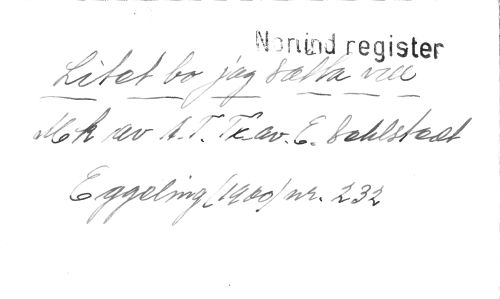 Norlind register
Litet bo jag sätta vill
Mek av A.T. Tx. av. E. Sehlstedt
Eggeling (1900) nr. 232